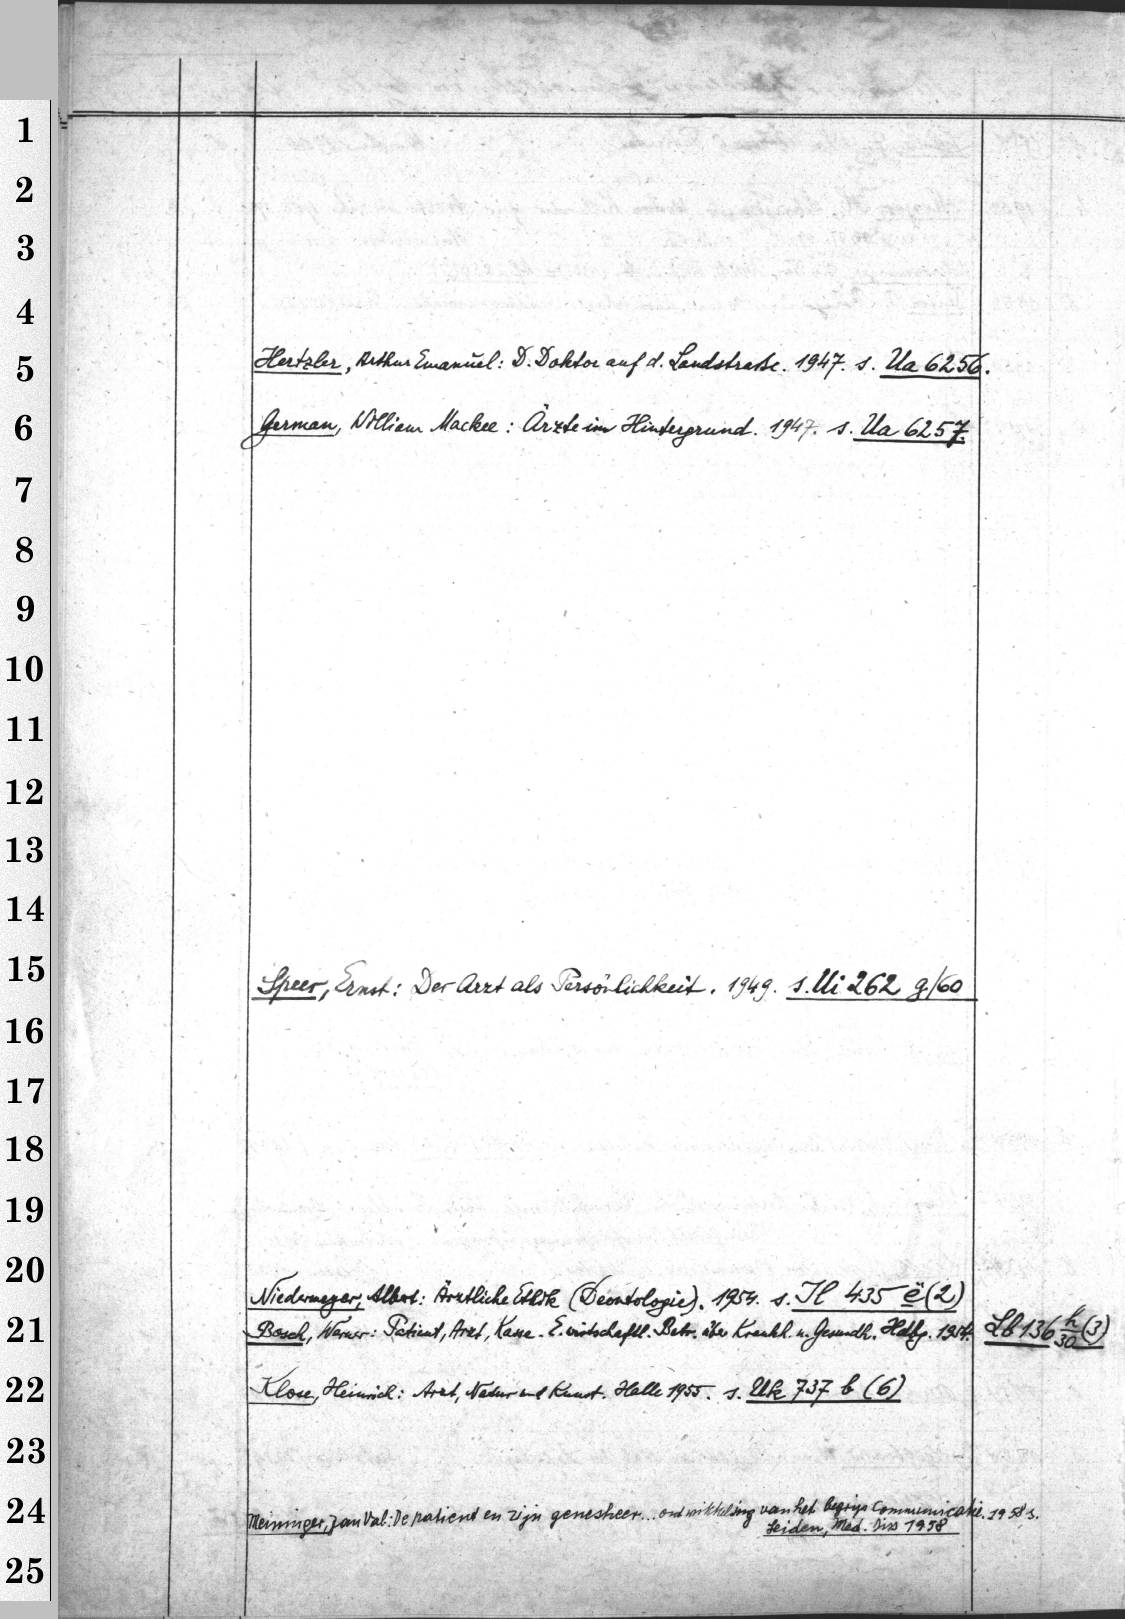 1
2
3
4
5
Hertzler, Arthur Emanuel: D. Doktor auf d. Landstraße. 1947. s. Ua 6256.
6
German, William Mackee: Ärzte im Hintergrund. 1947. s. Ua 6257.
7
8
9
10
11
12
13
14
15
Speer, Ernst: Der Arzt als Persönlichkeit. 1949. s. Ui 262 g/60
16
17
18
19
20
Niedermeyer, Albert: Ärztliche Ethik (Deontologie). 1954. s. Il 435 ë (2)
21
Bosch, Werner: Patient, Arzt, Kasse. E. wirtschaftl. Betr. über Krankh. u. Gesundh. Hdlbg. 1954. Lb 136 h/30 (3)
22
Klose, Heinrich: Arzt, Natur und Kunst. Halle 1955. s. Uk 737 b (6)
23
24
Meininger, Jan Val: De patient en zijn genesheer... ontwikkeling van het begrip Communicatie. 1958 s.
Leiden, Med. Diss 1958
25